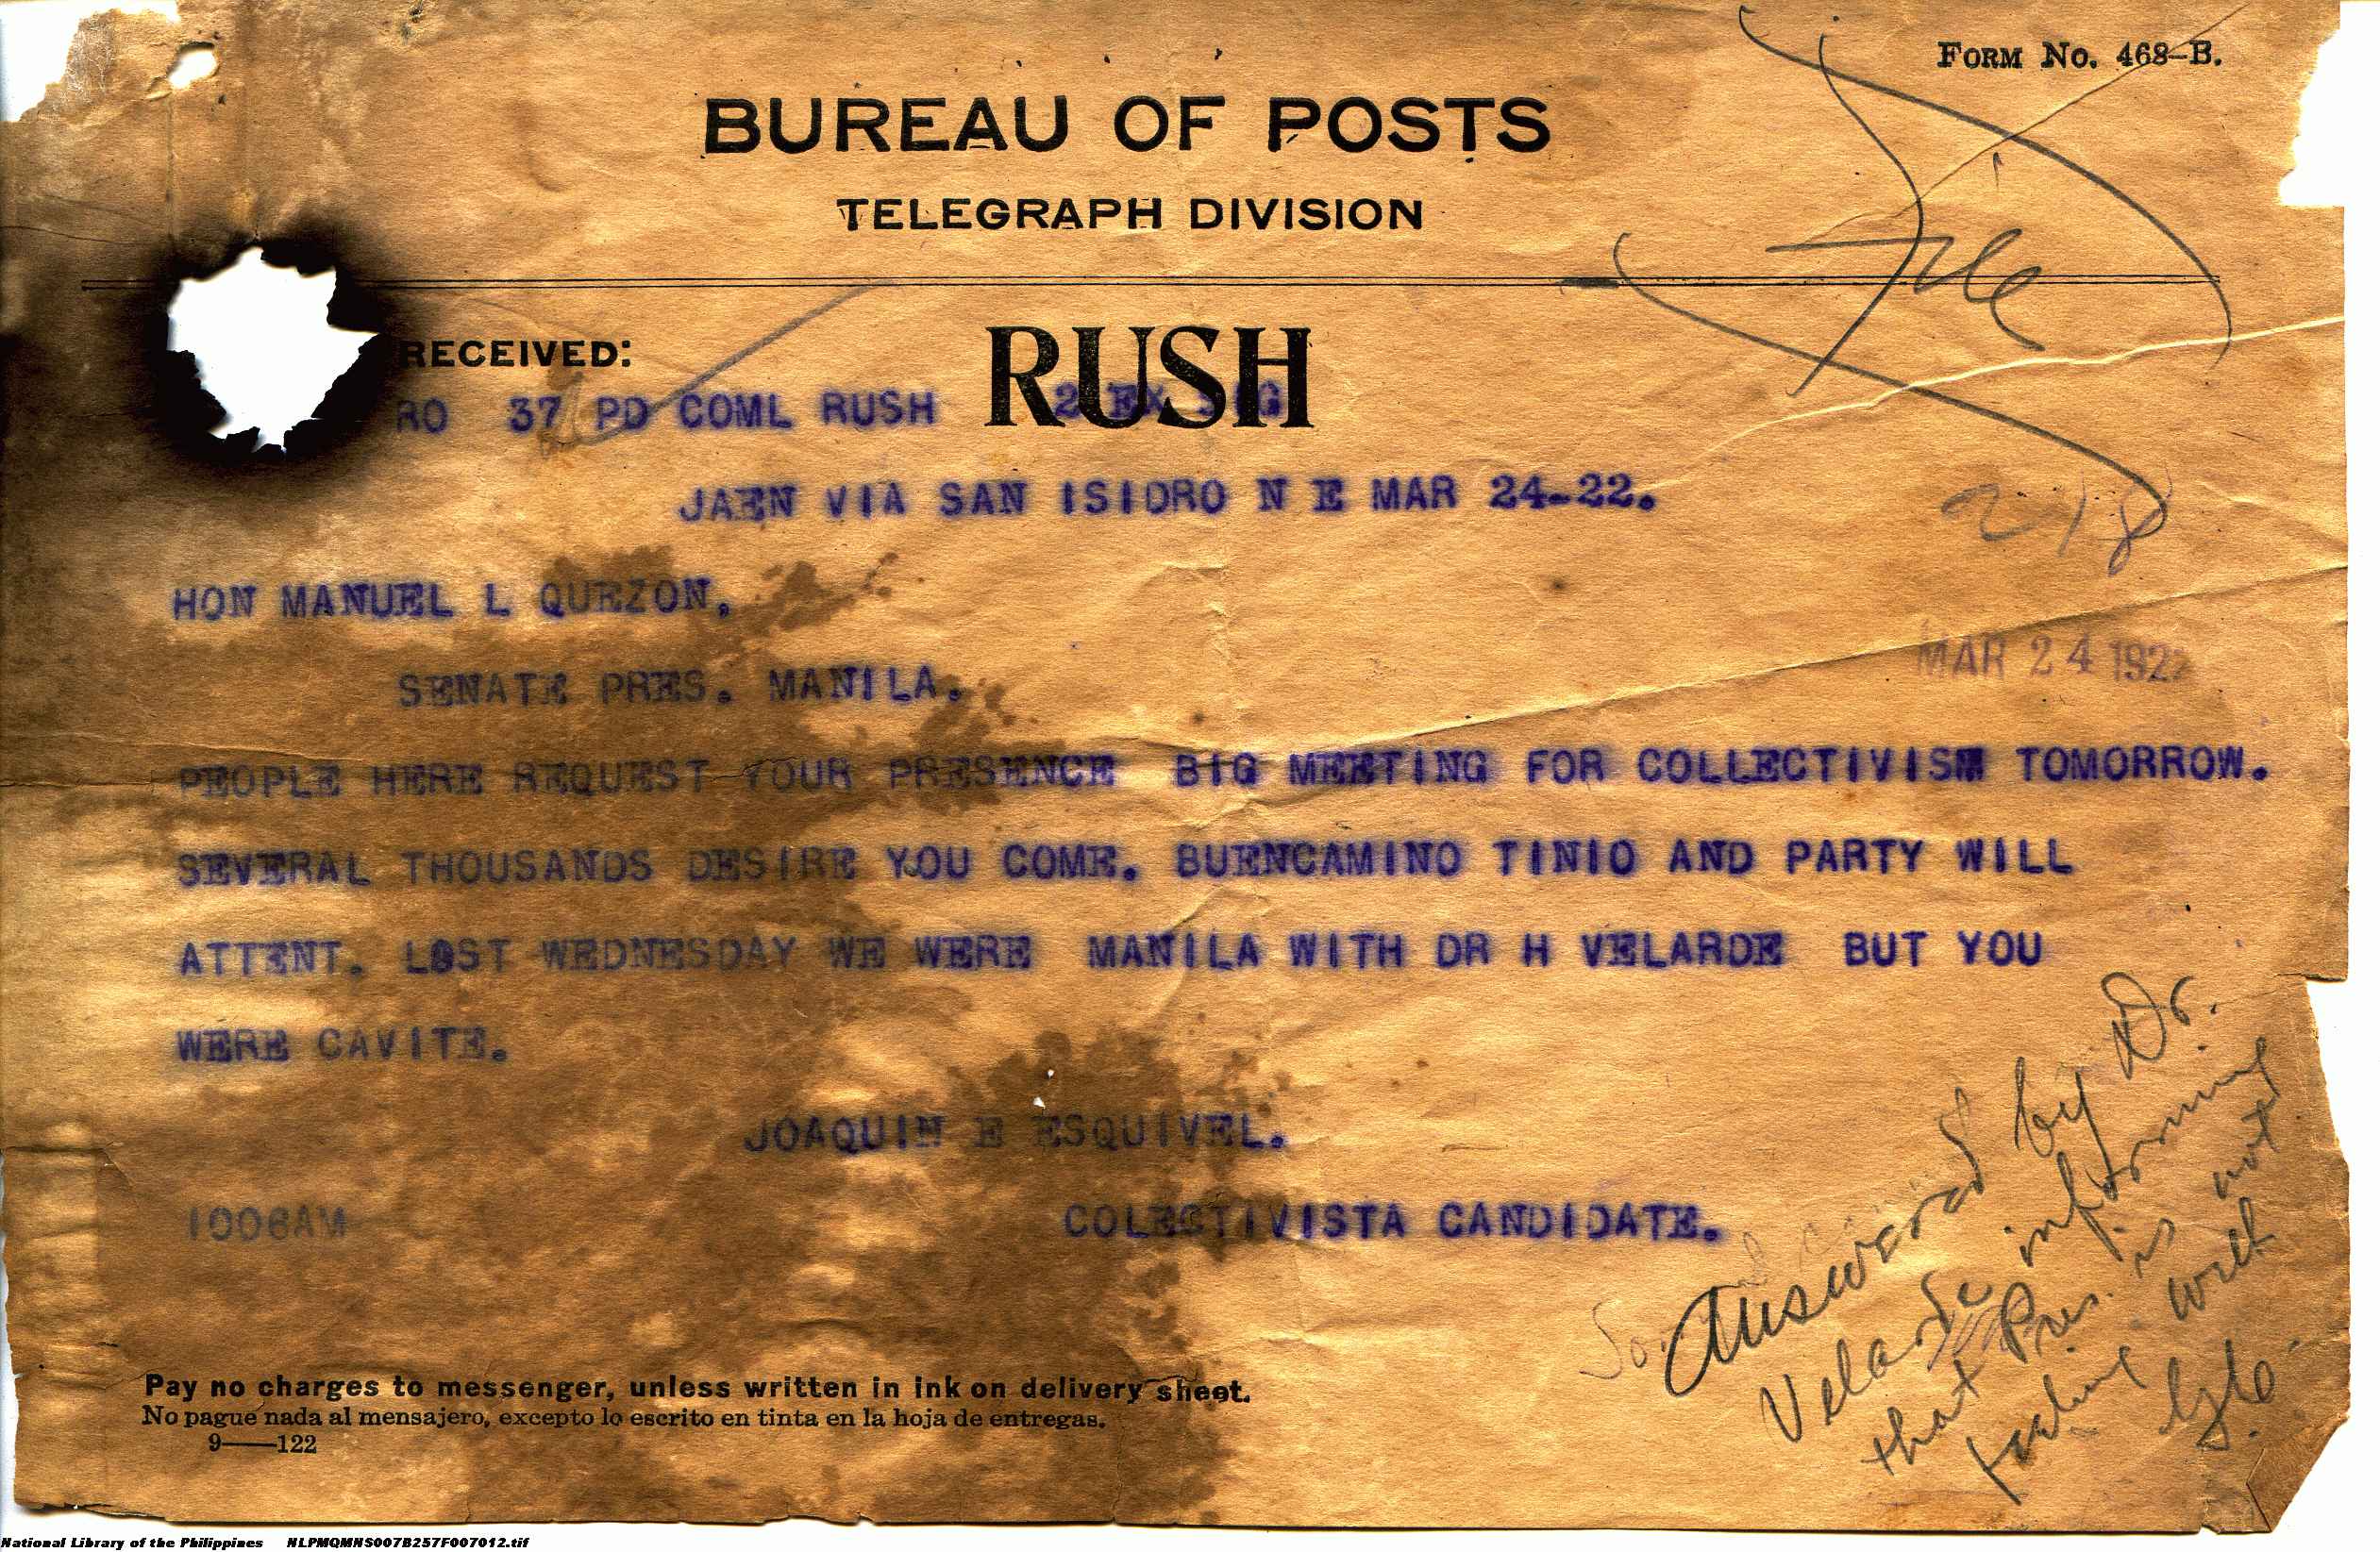 FORM NO. 468-B.
BUREAU OF POSTS
TELEGRAPH DIVISION
File
RECEIVED:
RUSH
RO 37 PD COML RUSH 2 EX SIG
JAEN VIA SAN ISIDRO N E MAR 24-22.
218
HON MANUEL L QUEZON,
SENATE PRES. MANILA.
MAR 24 1922
PEOPLE HERE REQUEST YOUR PRESENCE BIG MEETING FOR COLLECTIVISM TOMORROW.
SEVERAL THOUSANDS DESIRE YOU COME. BUENCAMINO TINIO AND PARTY WILL
ATTENT. LAST WEDNESDAY WE WERE MANILA WITH DR H VELARDE BUT YOU
WERE CAVITE.
JOAQUIN E ESQUIVEL.
1006AM COLECTIVISTA CANDIDATE.
Answered by Dr.
Velarde informing
that Pres. is not
feeling well
Pay no charges to messenger, unless written in ink on delivery sheet.
No pague nada al mensajero, excepto lo escrito en tinta en la hoja de entregas.
9——122
National Library of the Philippines NLPMQMNS007B257F007012.tif